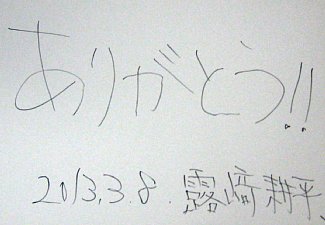 ありがとう!!
2013.3.8. 露﨑耕平